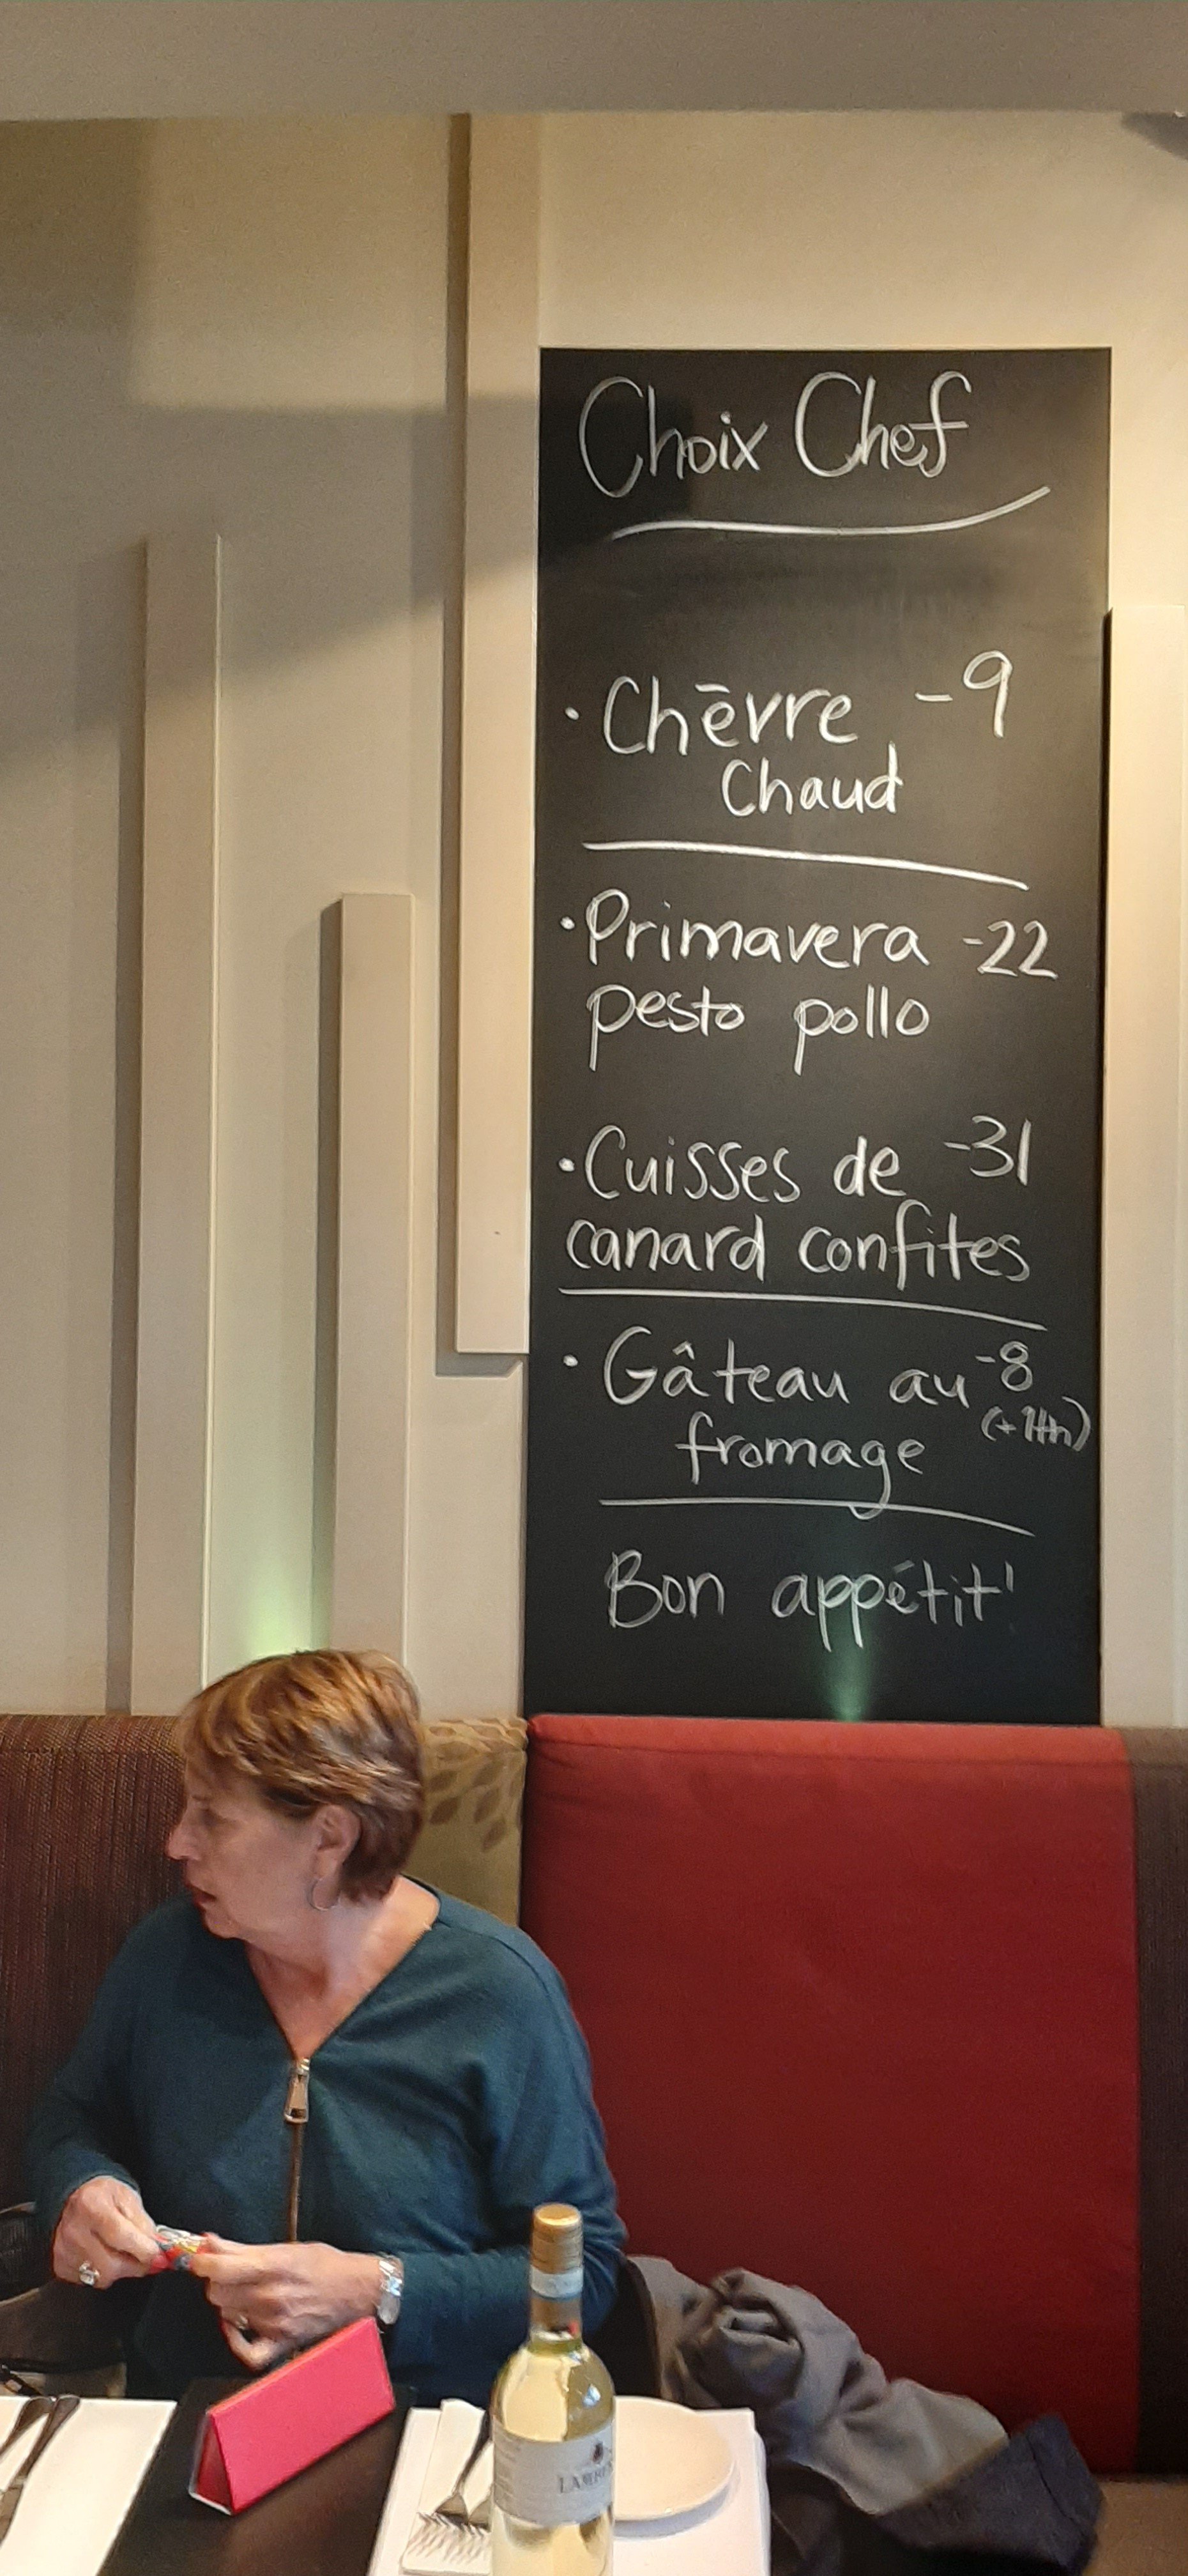 Choix Chef
· Chēvre - 9
Chaud
· Primavera - 22
pesto pollo
· Cuisses de - 31
canard confites
· Gâteau au - 8
fromage
Bon appétit!